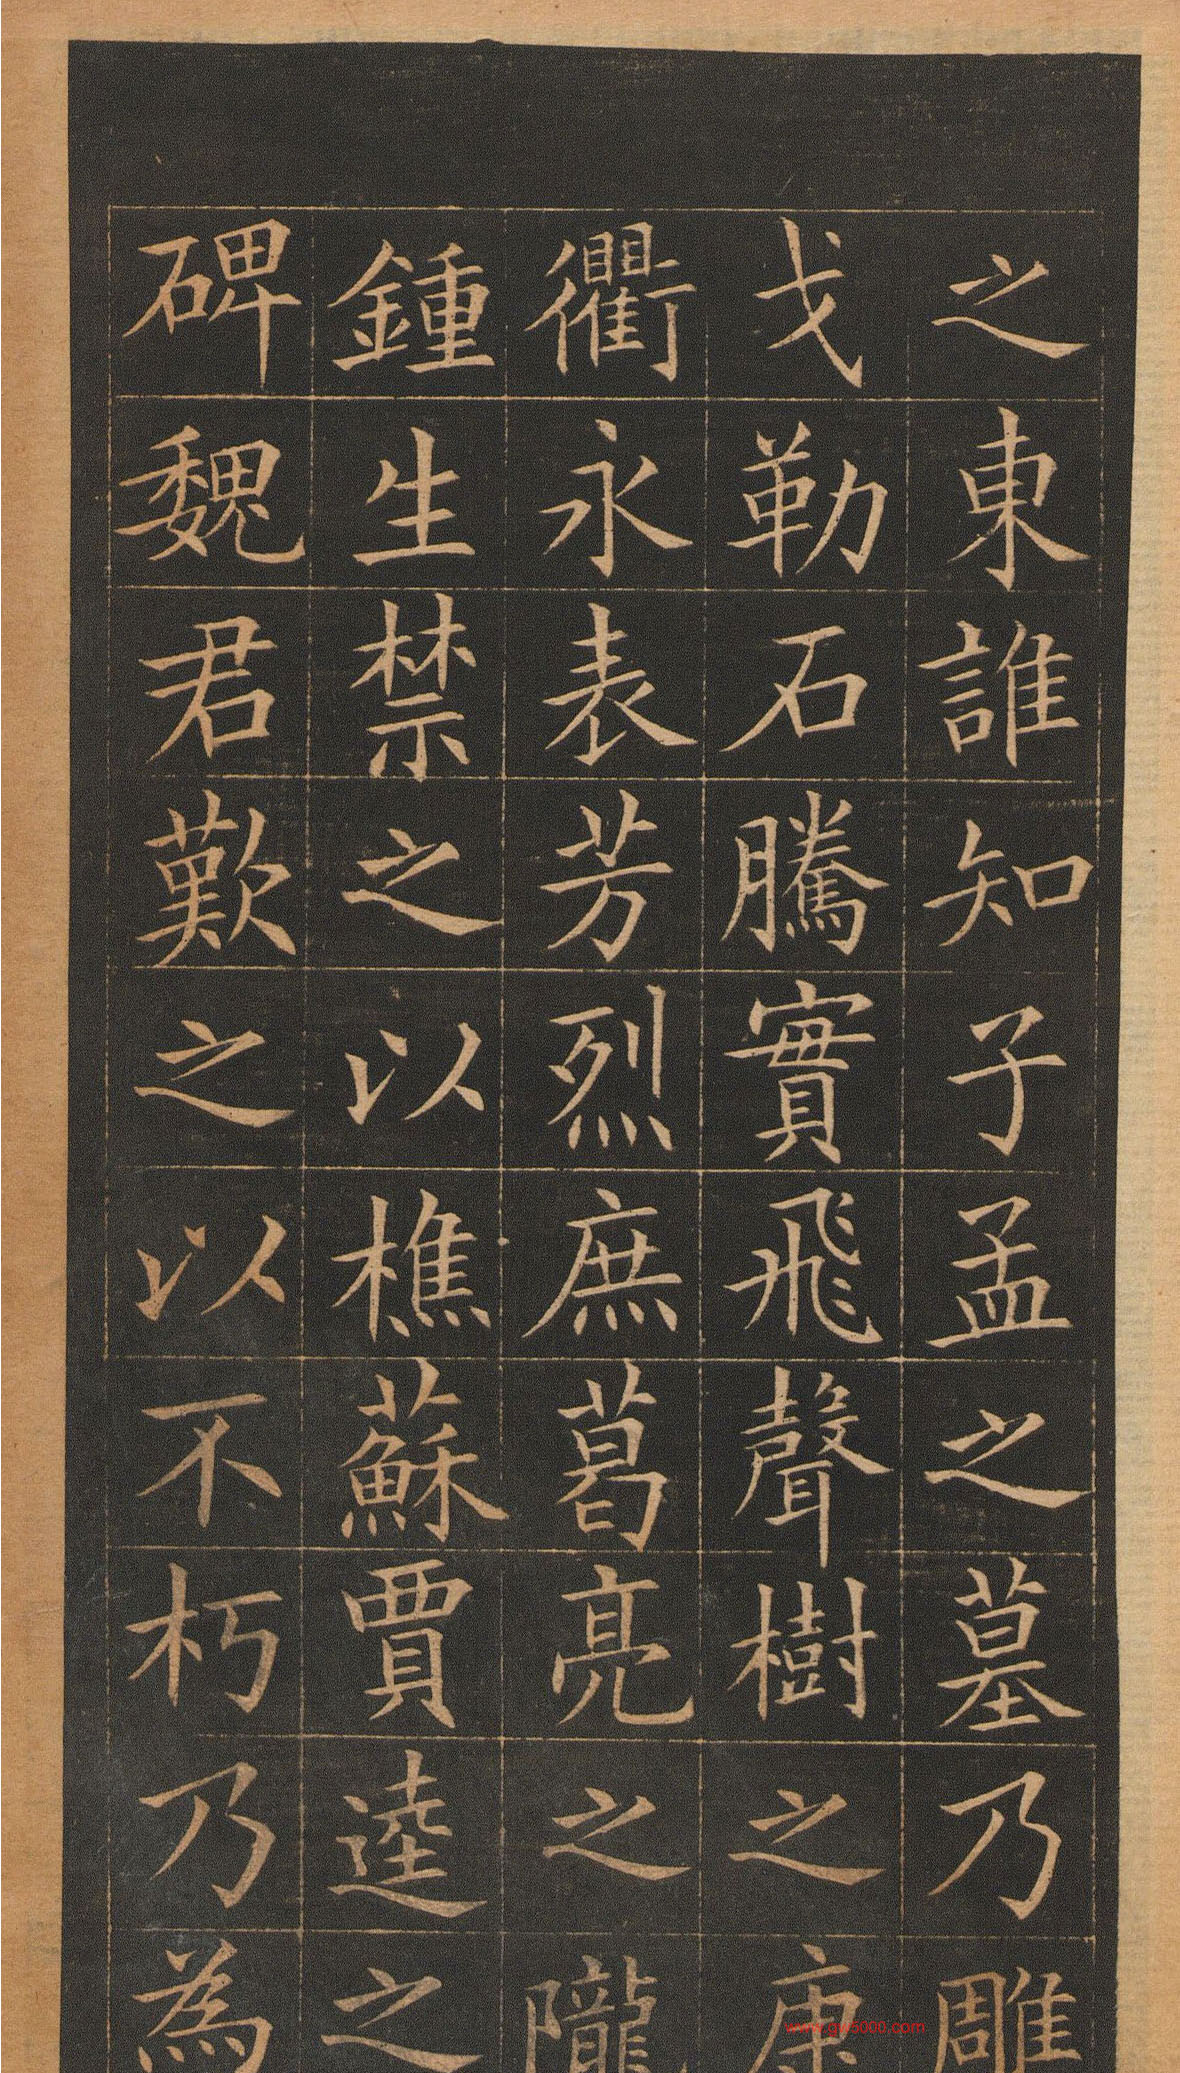 之東誰知子孟之墓乃雕
戈勒石騰實飛聲樹之康
衢永表芳烈庶葛亮之隴
鍾生禁之以樵蘇賈逵之
碑魏君歎之以不朽乃為
www.gw5000.com